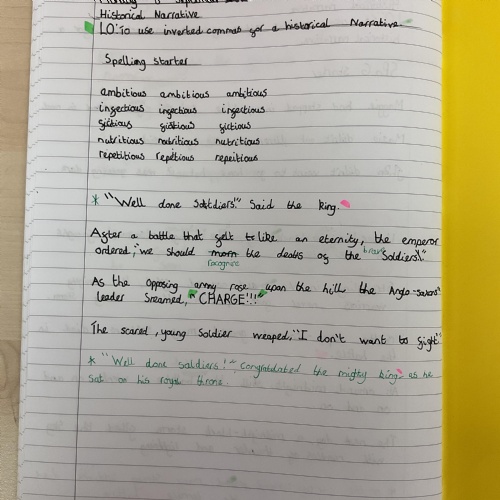 Historical Narrative
LO: To use inverted commas for a historical Narrative
Spelling starter
ambitious ambitious ambitious
infectious infectious infectious
fictious fictious fictious
nutritious nutritious nutritious
repetitious repetious repeitious
* "Well done soldiers!" Said the King.
After a battle that felt to like an eternity, the emperor
ordered, "we should morn the deaths of the brave Soldiers!"
recognise
As the opposing army rose upon the hill the Anglo-saxons
leader Sreamed, "CHARGE!!!"
The scared, young Soldier weaped, "I don't want to fight"
* "Well done soldiers!", Congratulated the mighty king as he
sat on his royal throne.